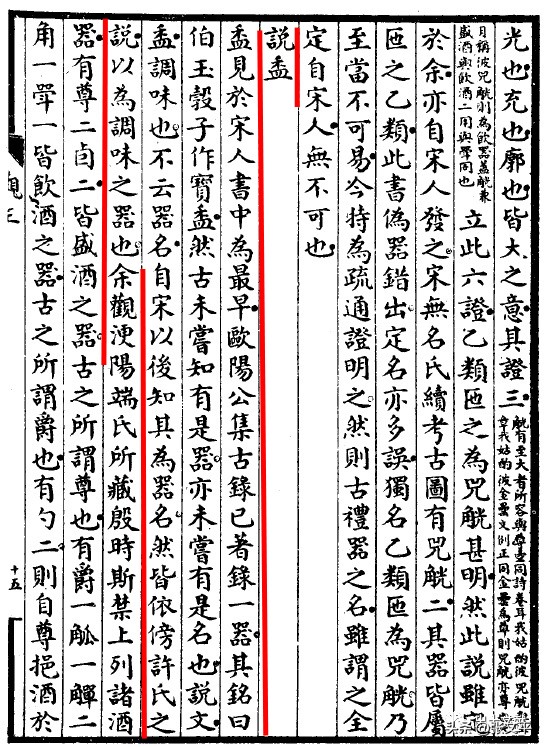 光也充也廓也皆大之意其證三觥有至大者所容與尊壺同詩卷耳我姑酌彼兕觥
章我姑酌彼金罍文例正同金罍為尊則兕觥亦尊
稱彼兕觥則為飲器蓋觥兼
盛酒與飲酒二用與斝同也
立此六證乙類匜之為兕觥甚明然此說雖定
於余亦自宋人發之宋無名氏續考古圖有兕觥二其器皆屬
匜之乙類此書偽器錯出定名亦多誤獨名乙類匜為兕觥乃
至當不可易今特為疏通證明之然則古禮器之名雖謂之全
定自宋人無不可也
說盉
盉見於宋人書中為最早歐陽公集古錄已著錄一器其銘曰
伯玉㱿子作寶盉然古未嘗知有是器亦未嘗有是名也說文
盉調味也不云器名自宋以後知其為器名然皆依傍許氏之
說以為調味之器也余觀浭陽端氏所藏殷時斯禁上列諸酒
器有尊二卣二皆盛酒之器古之所謂尊也有爵一觚一觶二
角一斝一皆飲酒之器古之所謂爵也有勺二則自尊挹酒於
三
十五
头条